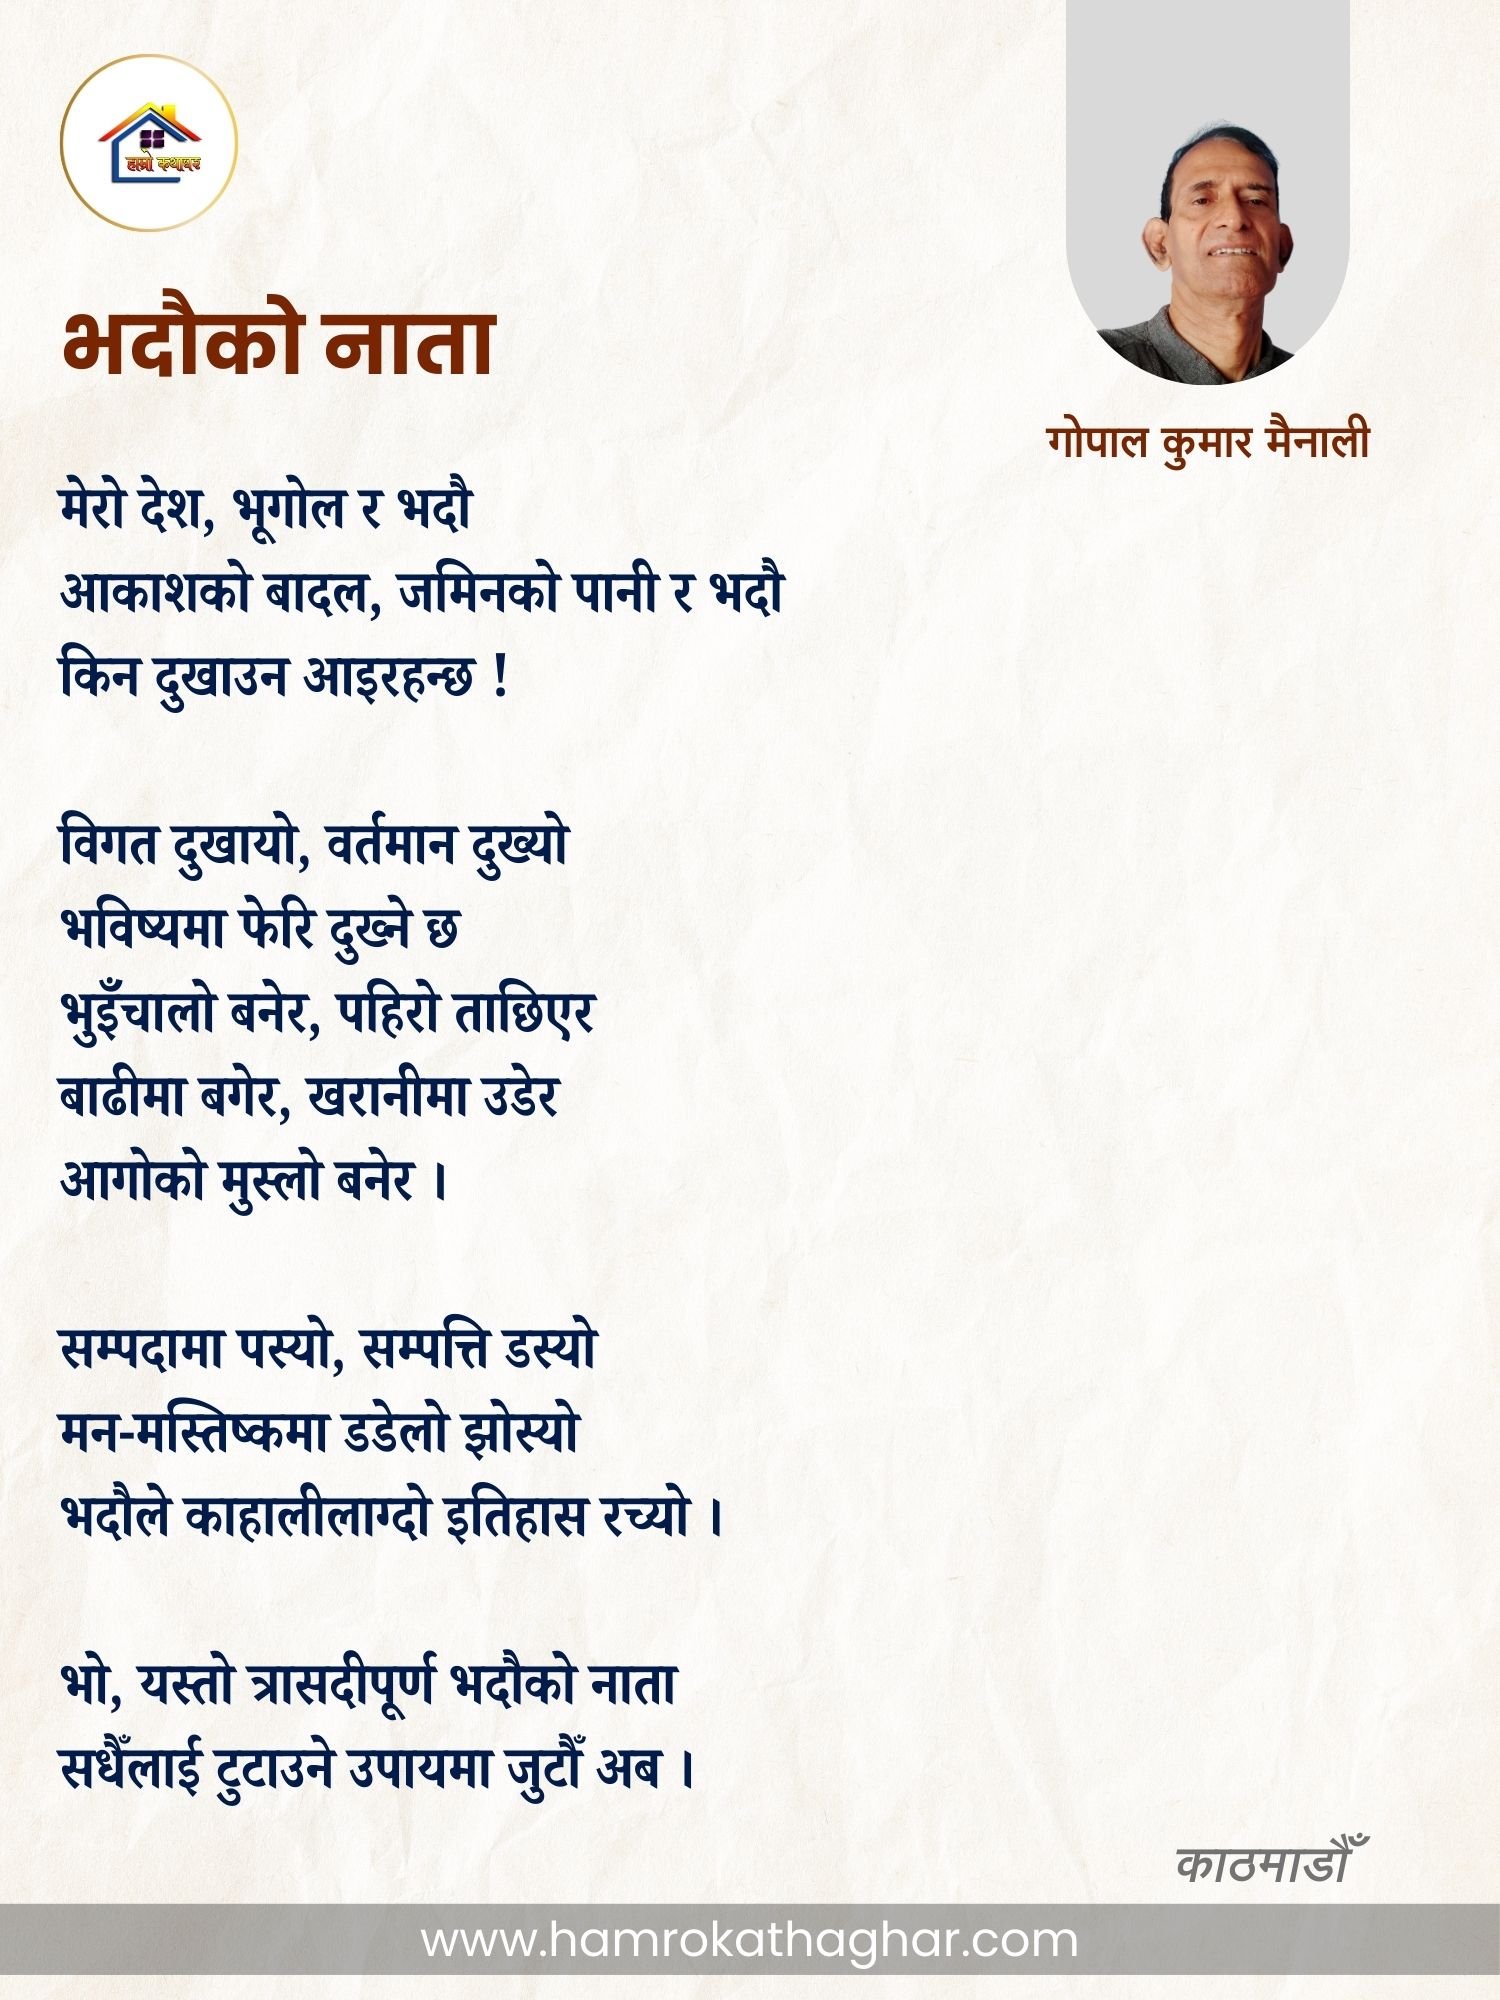 हाम्रो कथाघर
भदौको नाता
गोपाल कुमार मैनाली
मेरो देश, भूगोल र भदौ
आकाशको बादल, जमिनको पानी र भदौ
किन दुखाउन आइरहन्छ !
विगत दुखायो, वर्तमान दुख्यो
भविष्यमा फेरि दुख्ने छ
भुइँचालो बनेर, पहिरो ताछिएर
बाढीमा बगेर, खरानीमा उडेर
आगोको मुस्लो बनेर ।
सम्पदामा पस्यो, सम्पत्ति डस्यो
मन-मस्तिष्कमा डडेलो झोस्यो
भदौले काहालीलाग्दो इतिहास रच्यो ।
भो, यस्तो त्रासदीपूर्ण भदौको नाता
सधैँलाई टुटाउने उपायमा जुटौँ अब ।
काठमाडौँ
www.hamrokathaghar.com